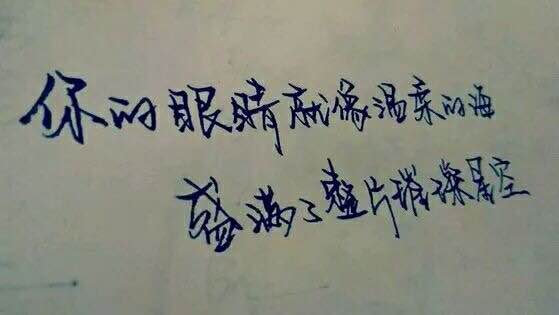 你的眼睛就像温柔的海
盛满了整片璀璨星空